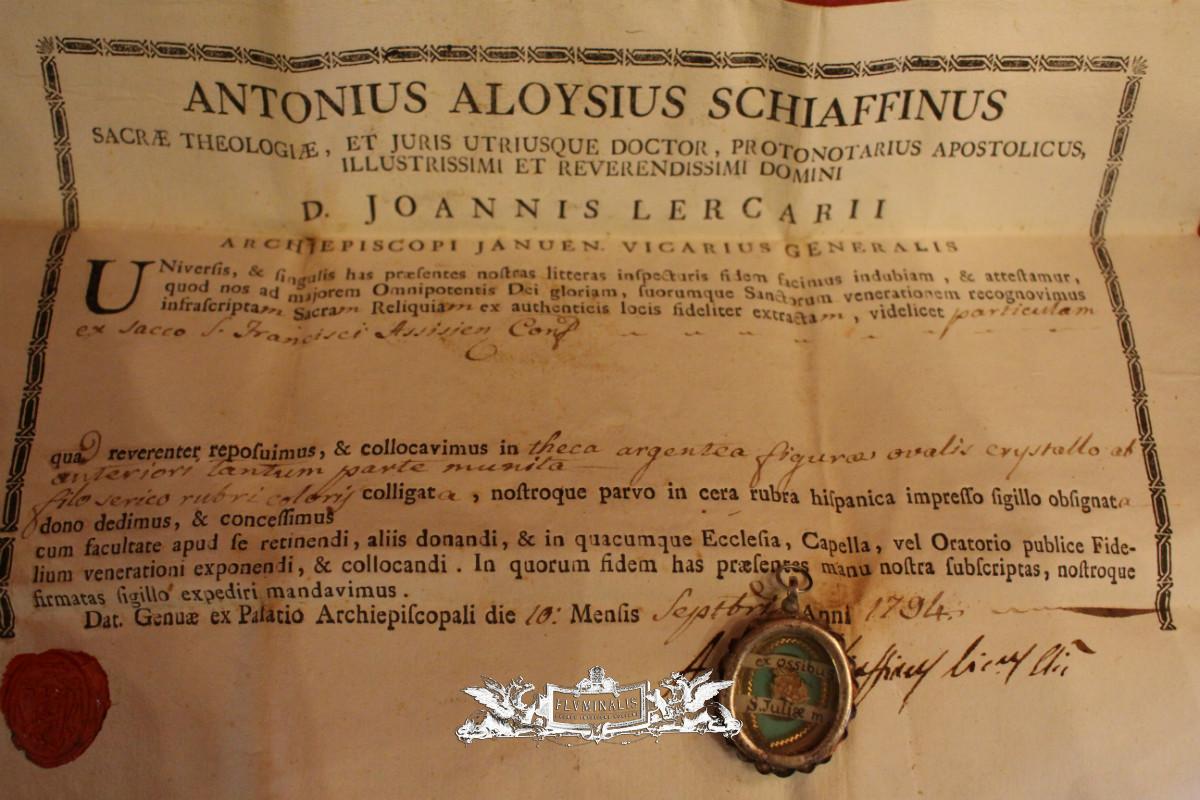 ANTONIUS ALOYSIUS SCHIAFFINUS
SACRÆ THEOLOGIÆ, ET JURIS UTRIUSQUE DOCTOR, PROTONOTARIUS APOSTOLICUS,
ILLUSTRISSIMI ET REVERENDISSIMI DOMINI
D. JOANNIS LERCARII
ARCHIEPISCOPI JANUEN. VICARIUS GENERALIS
UNiversis, & ſingulis has præsentes noſtras litteras inſpecturis fidem facimus indubiam, & atteſtamur,
quod nos ad majorem Omnipotentis Dei gloriam, ſuorumque Sanctorum venerationem recognovimus
infraſcriptam Sacram Reliquiam ex authenticis locis fideliter extractam, videlicet particulam
ex sacco S. Francisci Assisien Conf
quã reverenter repoſuimus, & collocavimus in theca argentea figuræ ovalis crystallo ab
anteriori tantum parte munita
filo serico rubri coloris colligata, noſtroque parvo in cera rubra hiſpanica impreſſo ſigillo obſignata
dono dedimus, & conceſſimus
cum facultate apud ſe retinendi, aliis donandi, & in quacumque Eccleſia, Capella, vel Oratorio publice Fide-
lium venerationi exponendi, & collocandi. In quorum fidem has præſentes manu noſtra ſubſcriptas, noſtroque
firmatas ſigillo expediri mandavimus.
Dat. Genuæ ex Palatio Archiepiſcopali die 10. Menſis Septbris Anni 1794.
ex ossibus
S. Juliæ m
FLVMINALIS